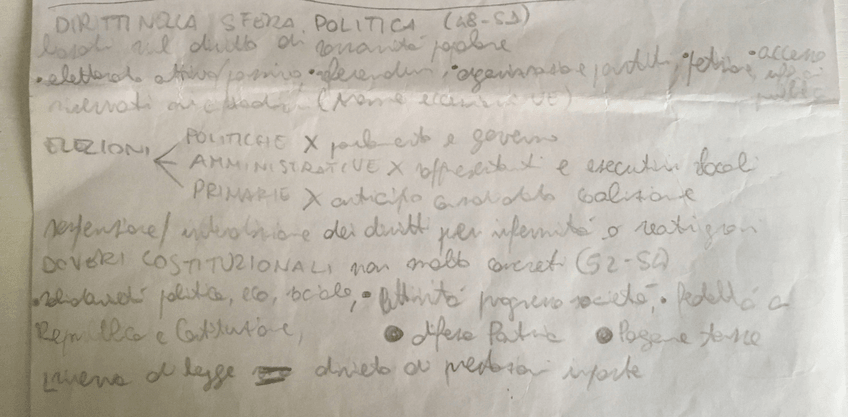 DIRITTI NELLA SFERA POLITICA (48-51)
basati sul diritto di sovranità popolare
• elettorato attivo/passivo, • referendum, • organizzazione partiti, • petizione • accesso uffici pubblici
riservati ai cittadini (Norme eccezioni UE)
ELEZIONI
POLITICHE X parlamento e governo
AMMINISTRATIVE X rappresentanti e esecutivi locali
PRIMARIE X anticipo candidato coalizione
sospensione/ dei diritti per infermità o reati gravi
DOVERI COSTITUZIONALI non molto concreti (52-54)
• solidarietà politica, eco, sociale, • attività progresso società, • fedeltà a
Repubblica e Costituzione, • difesa Patria • Pagare tasse
riserva di legge = divieto di prestazioni imposte